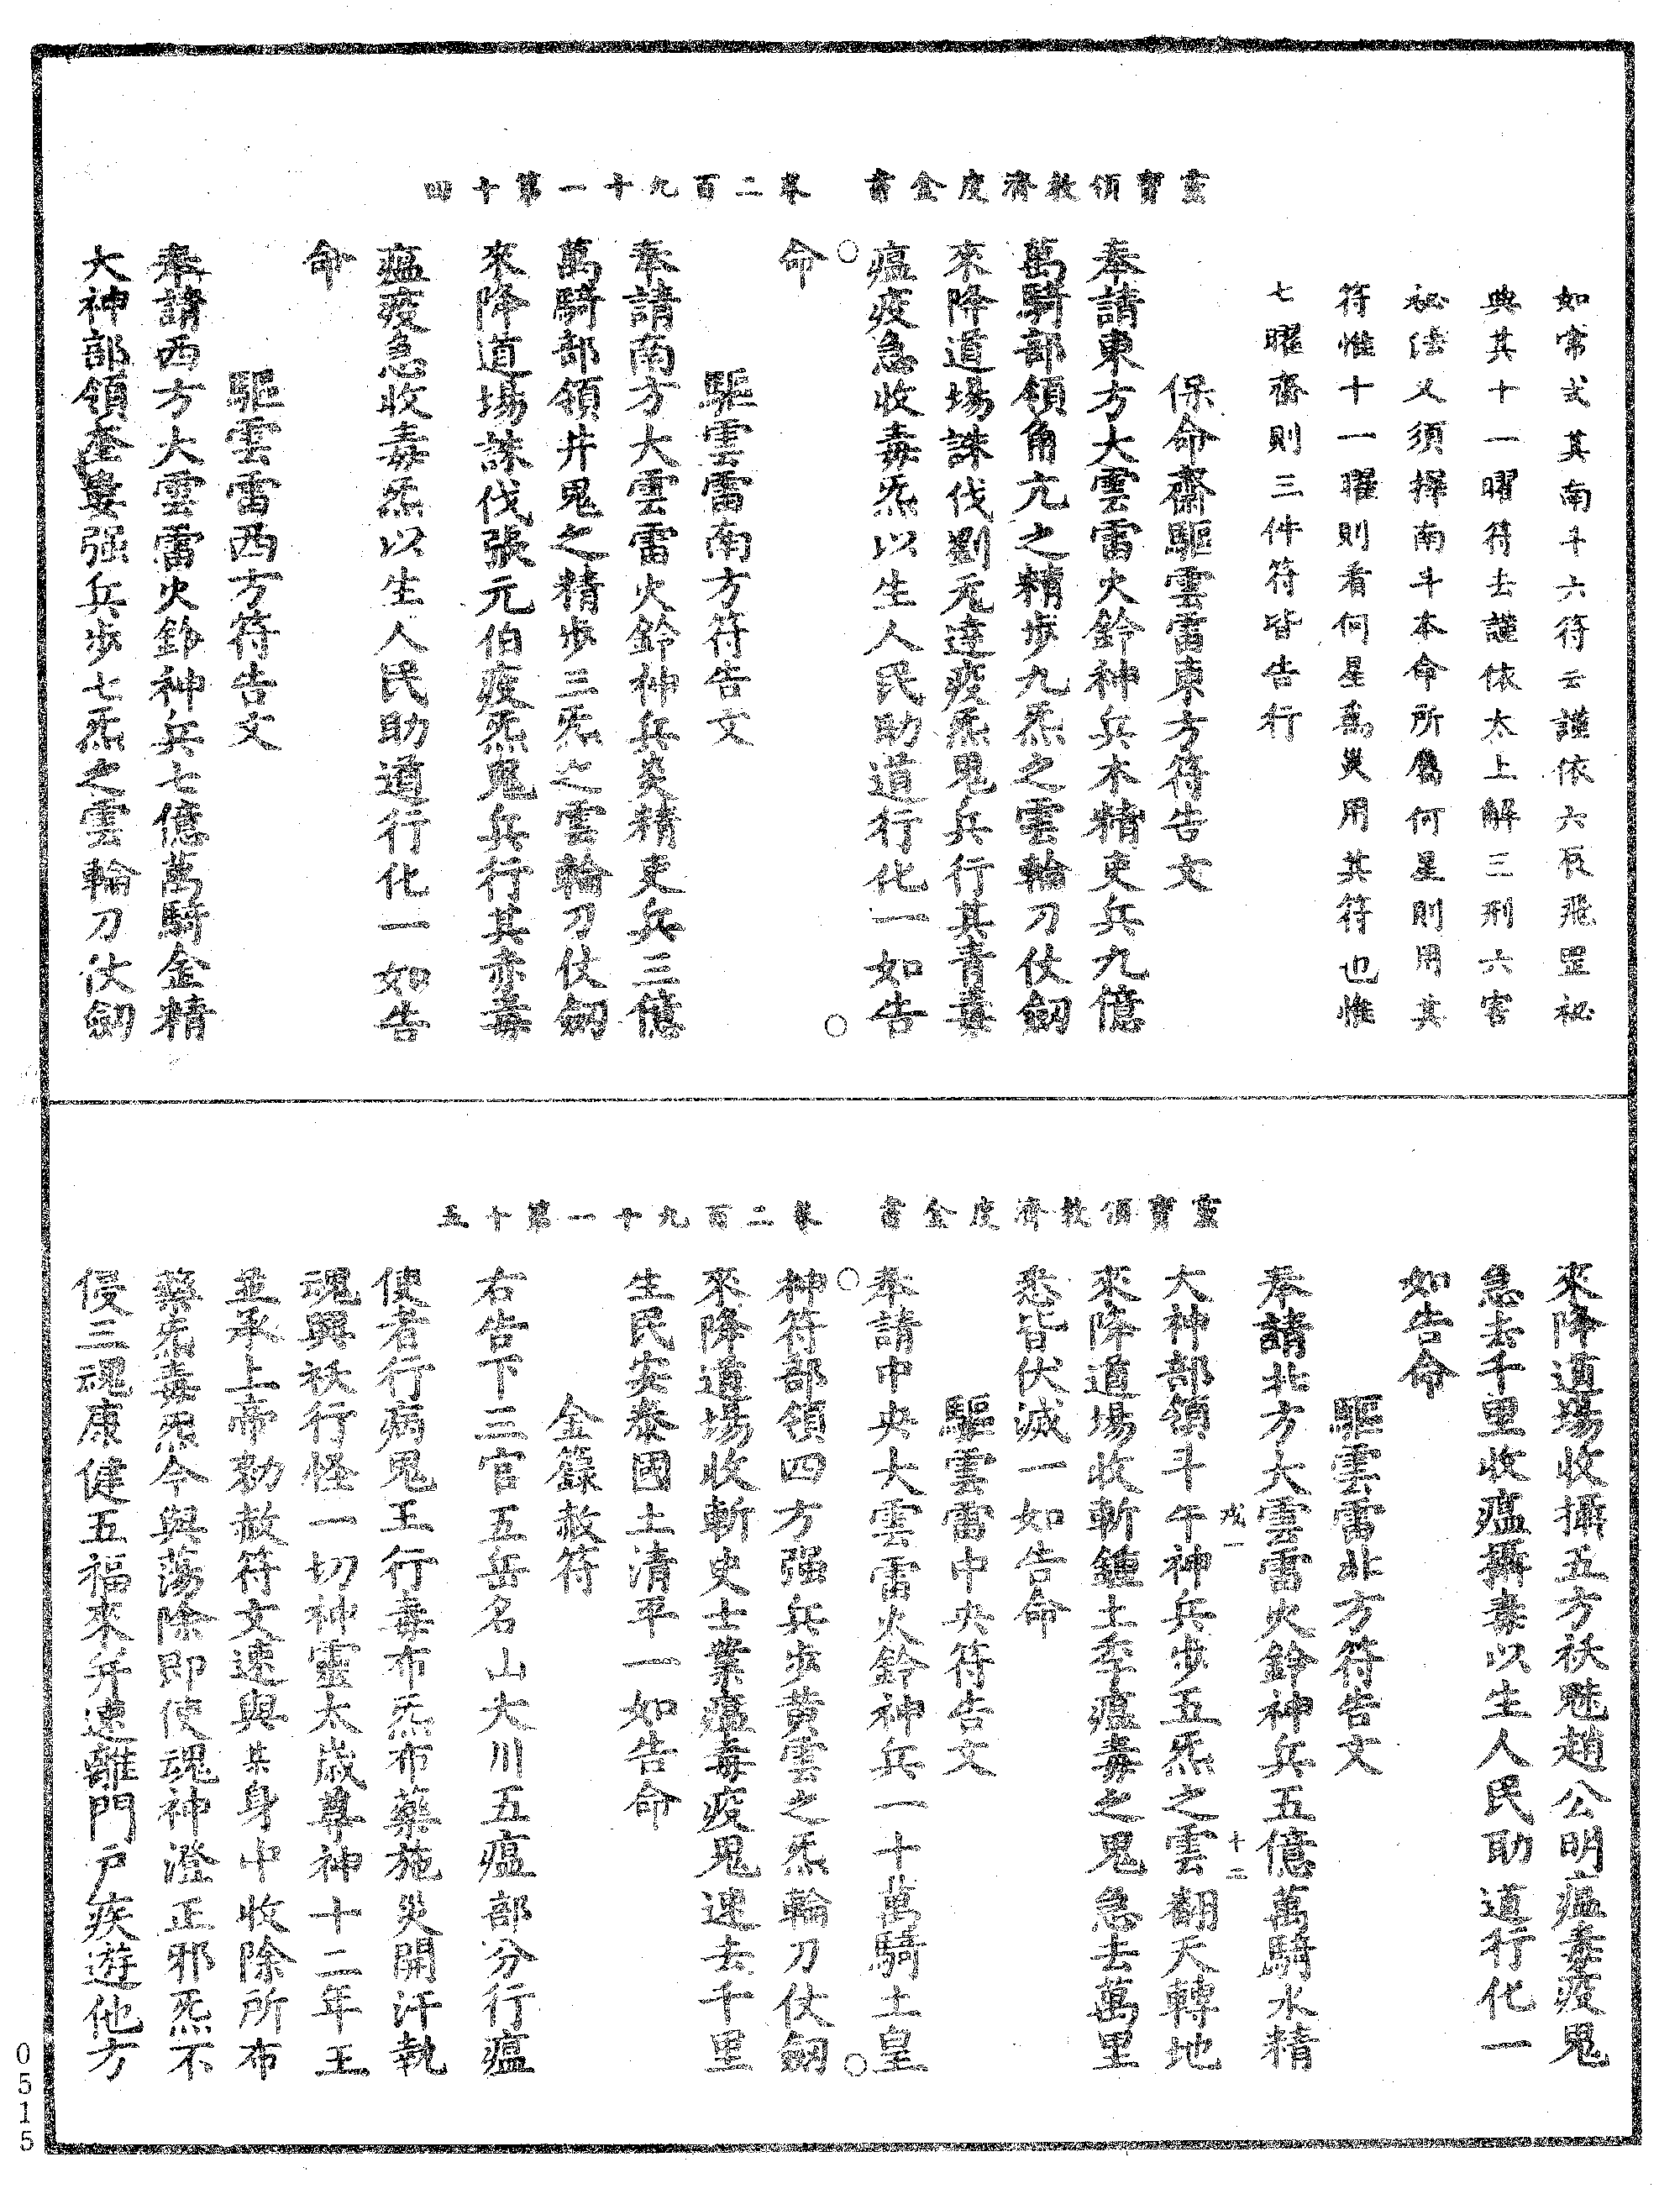 靈寶領教濟度金書　卷二百九十一第十四
如常式其南斗六符云謹依六辰飛罡祕
典其十一曜符云謹依太上解三刑六害
祕法又須擇南斗本命所屬何星則用其
符惟十一曜則看何星爲災用其符也惟
七曜齋則三件符皆告行
保命齋驅雲雷東方符告文
奉請東方大雲雷火鈴神兵木精吏兵九億
萬騎部領角亢之精步九炁之雲輪刀仗劒
來降道場誅伐劉元達疫炁鬼兵行其青毒
瘟疫急收毒炁以生人民助道行化一如告
命
驅雲雷南方符告文
奉請南方大雲雷火鈴神兵炎精吏兵三億
萬騎部領井鬼之精步三炁之雲輪刀仗劒
來降道場誅伐張元伯疫炁鬼兵行其赤毒
瘟疫急收毒炁以生人民助道行化一如告
命
驅雲雷西方符告文
奉請西方大雲雷火鈴神兵七億萬騎金精
大神部領奎婁强兵步七炁之雲輪刀仗劒
靈寶領教濟度金書　卷二百九十一第十五
來降道場收攝五方祅魅趙公明瘟毒疫鬼
急去千里收瘟攝毒以生人民助道行化一
如告命
驅雲雷北方符告文
奉請北方大雲雷火鈴神兵五億萬騎水精
戌一　十二
大神部領斗午神兵步五炁之雲翻天轉地
來降道場收斬鍾士季瘟毒之鬼急去萬里
悉皆伏滅一如告命
驅雲雷中央符告文
奉請中央大雲雷火鈴神兵一十萬騎土皇
神符部領四方强兵步黃雲之炁輪刀仗劒
來降道場收斬史士業瘟毒疫鬼速去千里
生民安泰國土清平一如告命
金籙赦符
右告下三官五岳名山大川五瘟部分行瘟
使者行病鬼王行毒布炁布藥施災開汗執
魂興祅行怪一切神靈太歲尊神十二年王
並承上帝勑赦符文速與某身中收除所布
藥炁毒炁今與蕩除即使魂神澄正邪炁不
侵三魂康健五福來并速離門戶疾遊他方
0515